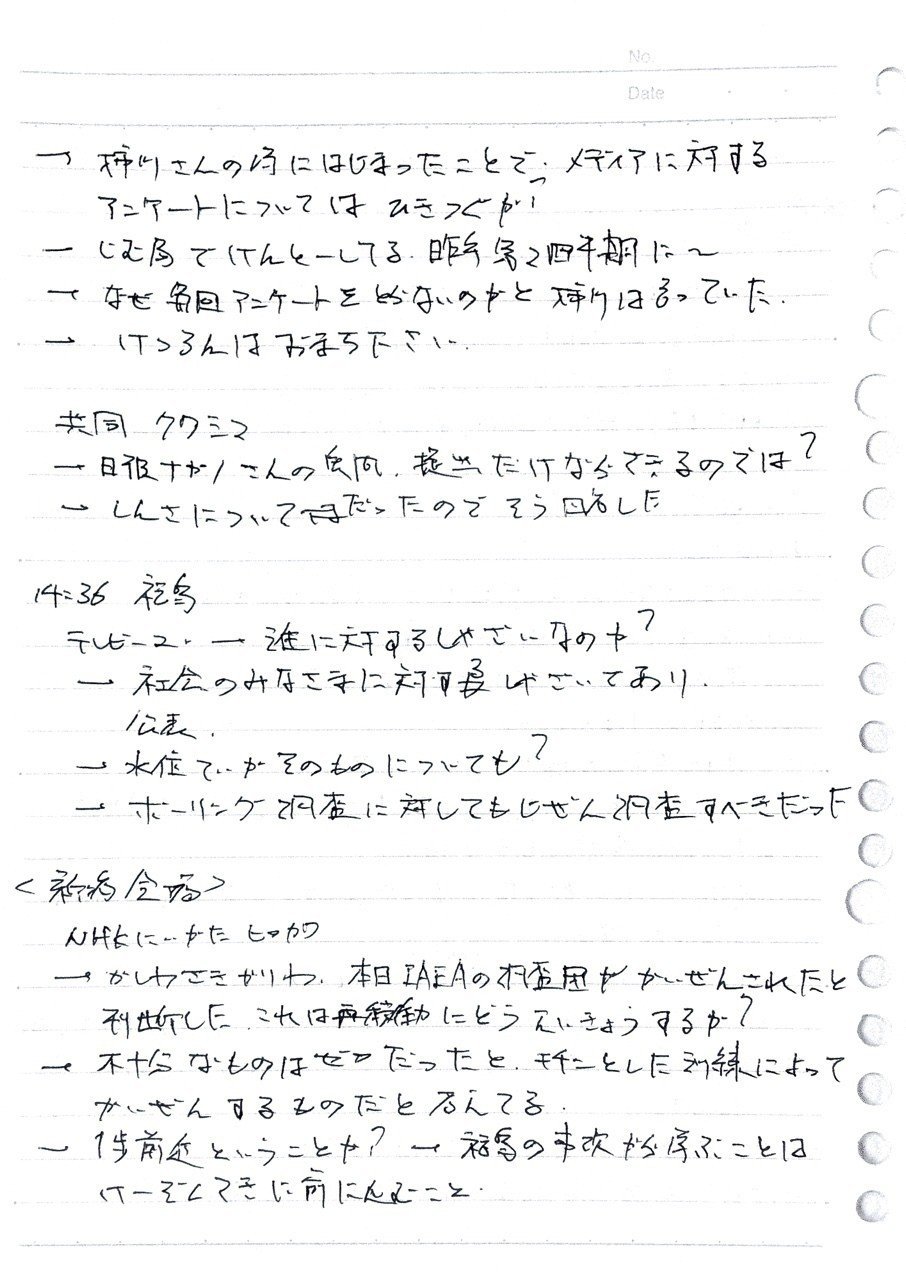 No.
Date
→ さんの時にはじまったことで、メディアに対する
アンケートについては ひきつぐが?
→ じむ局でけんとーしてる. 昨年第2四半期に〜
→ なぜ毎回アンケートをとらないのかと 言っていた.
→ けつろんはおまちださい.
共同 クワシマ
→ 目視 さんの 、提出だけなら できるのでは?
→ しんさについて だったので そう回答した
14:36 福島
テレビユー. → 誰に対するしゃざいなのか?
→ 社会のみなさまに対する しゃざいであり.
公表.
→ 水位ていかそのものについても?
→ ボーリング調査に対してもじぜん調査すべきだった
<新潟会場>
NHKにいがた
→ かしわざきかりわ. 本日IAEAの調査団が かいぜんされたと
判断した. これは再稼働にどうえいきょうするか?
→ 不十分なものはゼロだったと. キチンとした訓練によって
かいぜんするものだと考えてる.
→ 1歩前進ということか? → 福島の事故から学ぶことは
けーぞくてきに前にすすむこと.